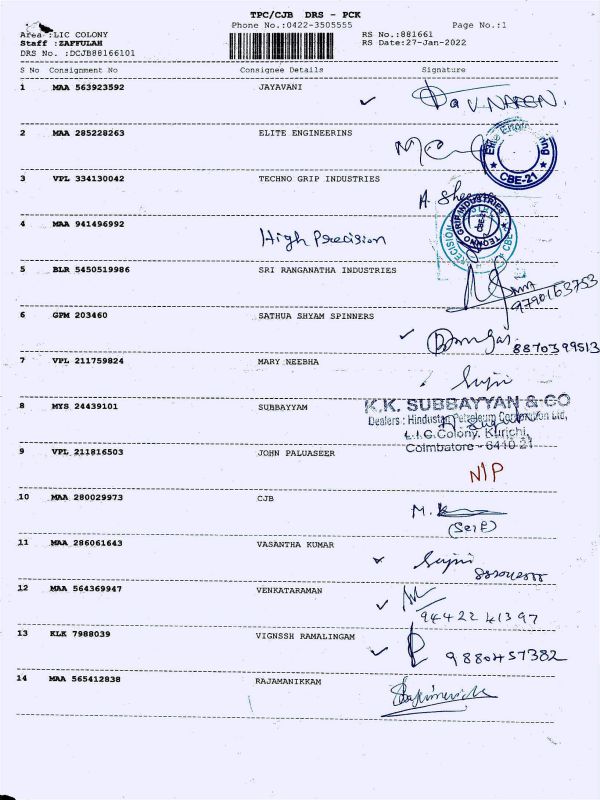 TPC/CJB DRS - PCK
Phone No.:0422-3505555 Page No.:1
Area :LIC COLONY RS No.:881661
Staff :ZAFFULAH RS Date:27-Jan-2022
DRS No. :DCJB88166101
S No Consignment No Consignee Details Signature
1 MAA 563923592 JAYAVANI
2 MAA 285228263 ELITE ENGINEERINS
CBE-21
3 VPL 334130042 TECHNO GRIP INDUSTRIES
TECHNO GRIP INDUSTRIES
4 MAA 941496992
High Precision
5 BLR 5450519986 SRI RANGANATHA INDUSTRIES
9790163753
6 GPM 203460 SATHUA SHYAM SPINNERS
8870399513
7 VPL 211759824 MARY NEEBHA
8 MYS 24439101 SUBBAYYAM
K.K. SUBBAYYAN & CO
Dealers : Hindustan Petroleum Corporation Ltd,
L.I.C.Colony, Kurichi,
Coimbatore - 6410 21
9 VPL 211816503 JOHN PALUASEER
N/P
10 MAA 280029973 CJB
(Self)
11 MAA 286061643 VASANTHA KUMAR
12 MAA 564369947 VENKATARAMAN
94422 41397
13 KLK 7988039 VIGNSSH RAMALINGAM
9880457382
14 MAA 565412838 RAJAMANIKKAM